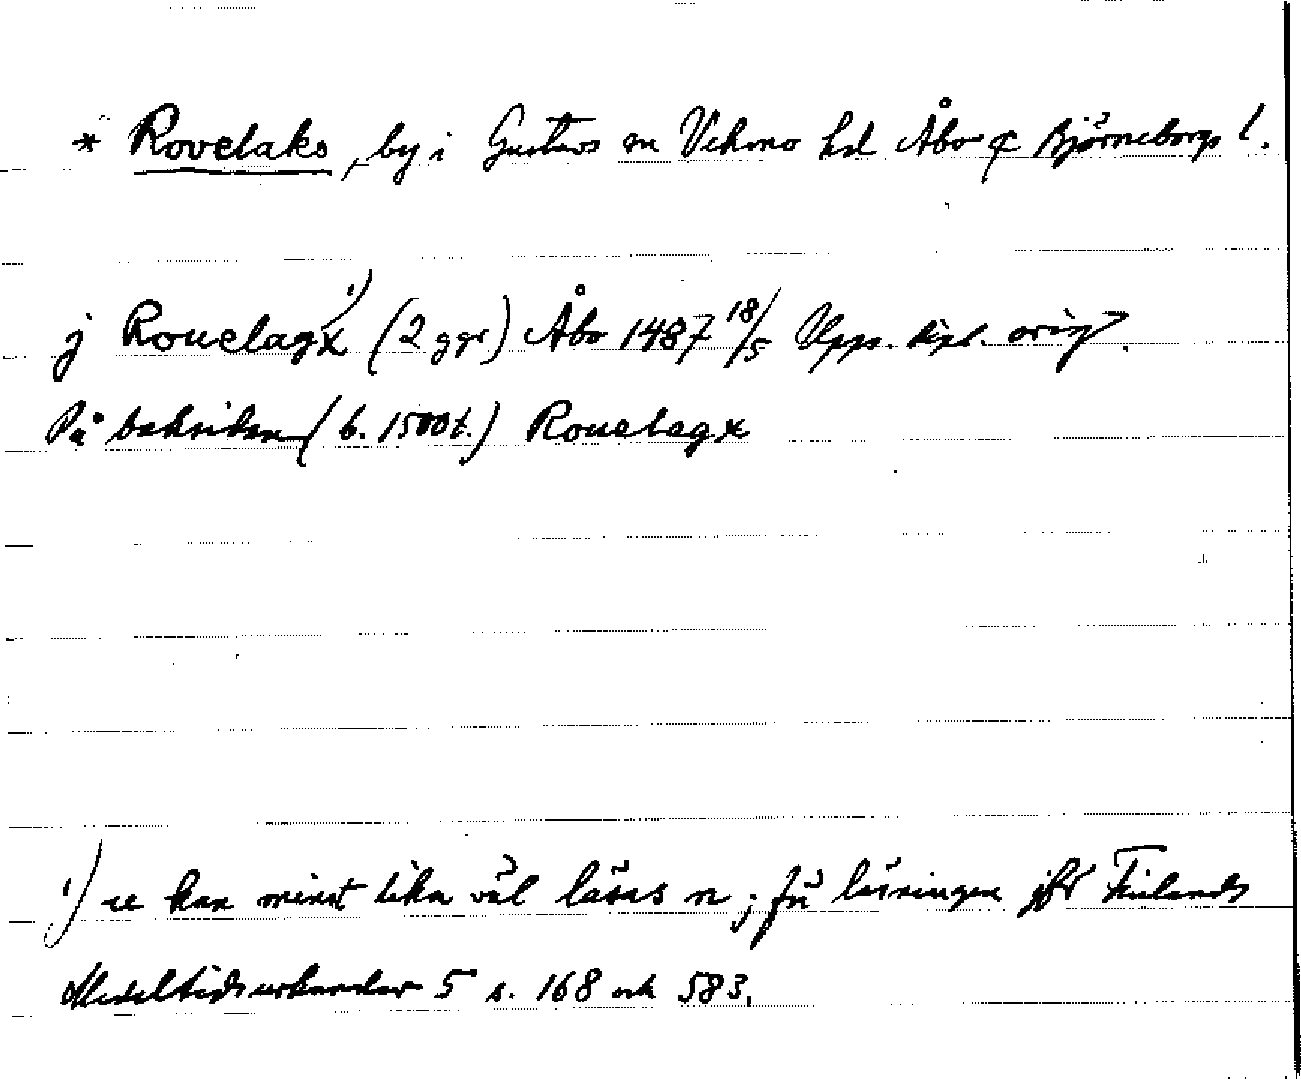 * Rovelaks, by i Gustavs sn Vehmo hd Åbo & Björneborgs l.
j Rouelagx ¹) (2 ggr) Åbo 1487 18/5 Upps. dipl. orig.
På baksidan (b. 1500t.) Rouelagx
¹) u kan minst lika väl läsas n; för läsningen jfr Finlands
Medeltidsurkunder 5 s. 168 och 583.